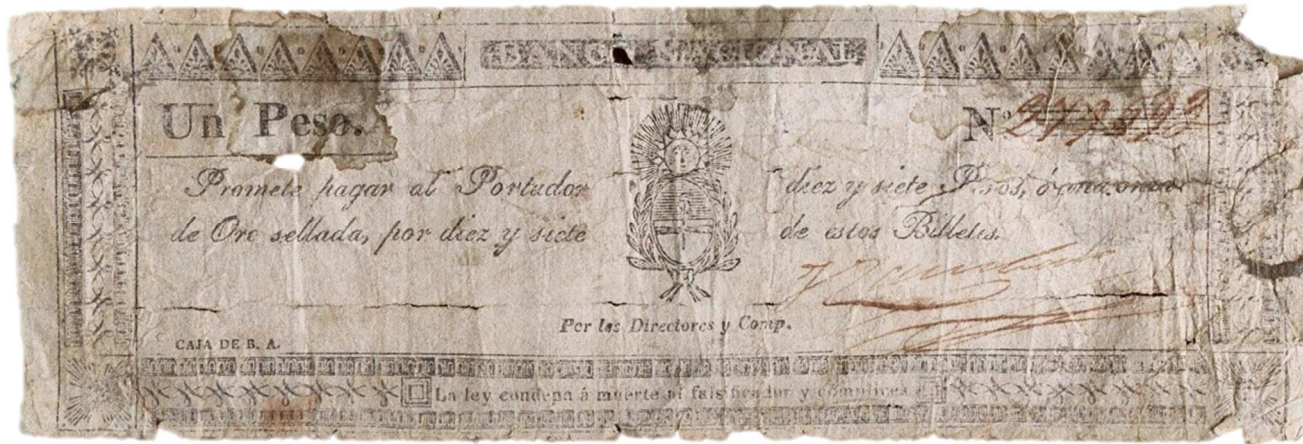 BANCO NACIONAL
Un Peso.
Nº
Promete pagar al Portador diez y siete Pesos, ó una onza
de Oro sellada, por diez y siete de estos Billetes.
Por los Directores y Comp.
CAJA DE B. A.
La ley condena á muerte al falsificador y complices